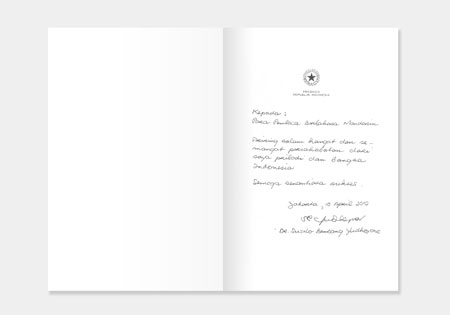 PRESIDEN
REPUBLIK INDONESIA
Kepada :
Para Pembaca
Teriring salam hangat dan se-
mangat persahabatan dari
saya pribadi dan bangsa
Indonesia
Semoga senantiasa sukses.
Jakarta, April 2012
Dr. Susilo Bambang Yudhoyono